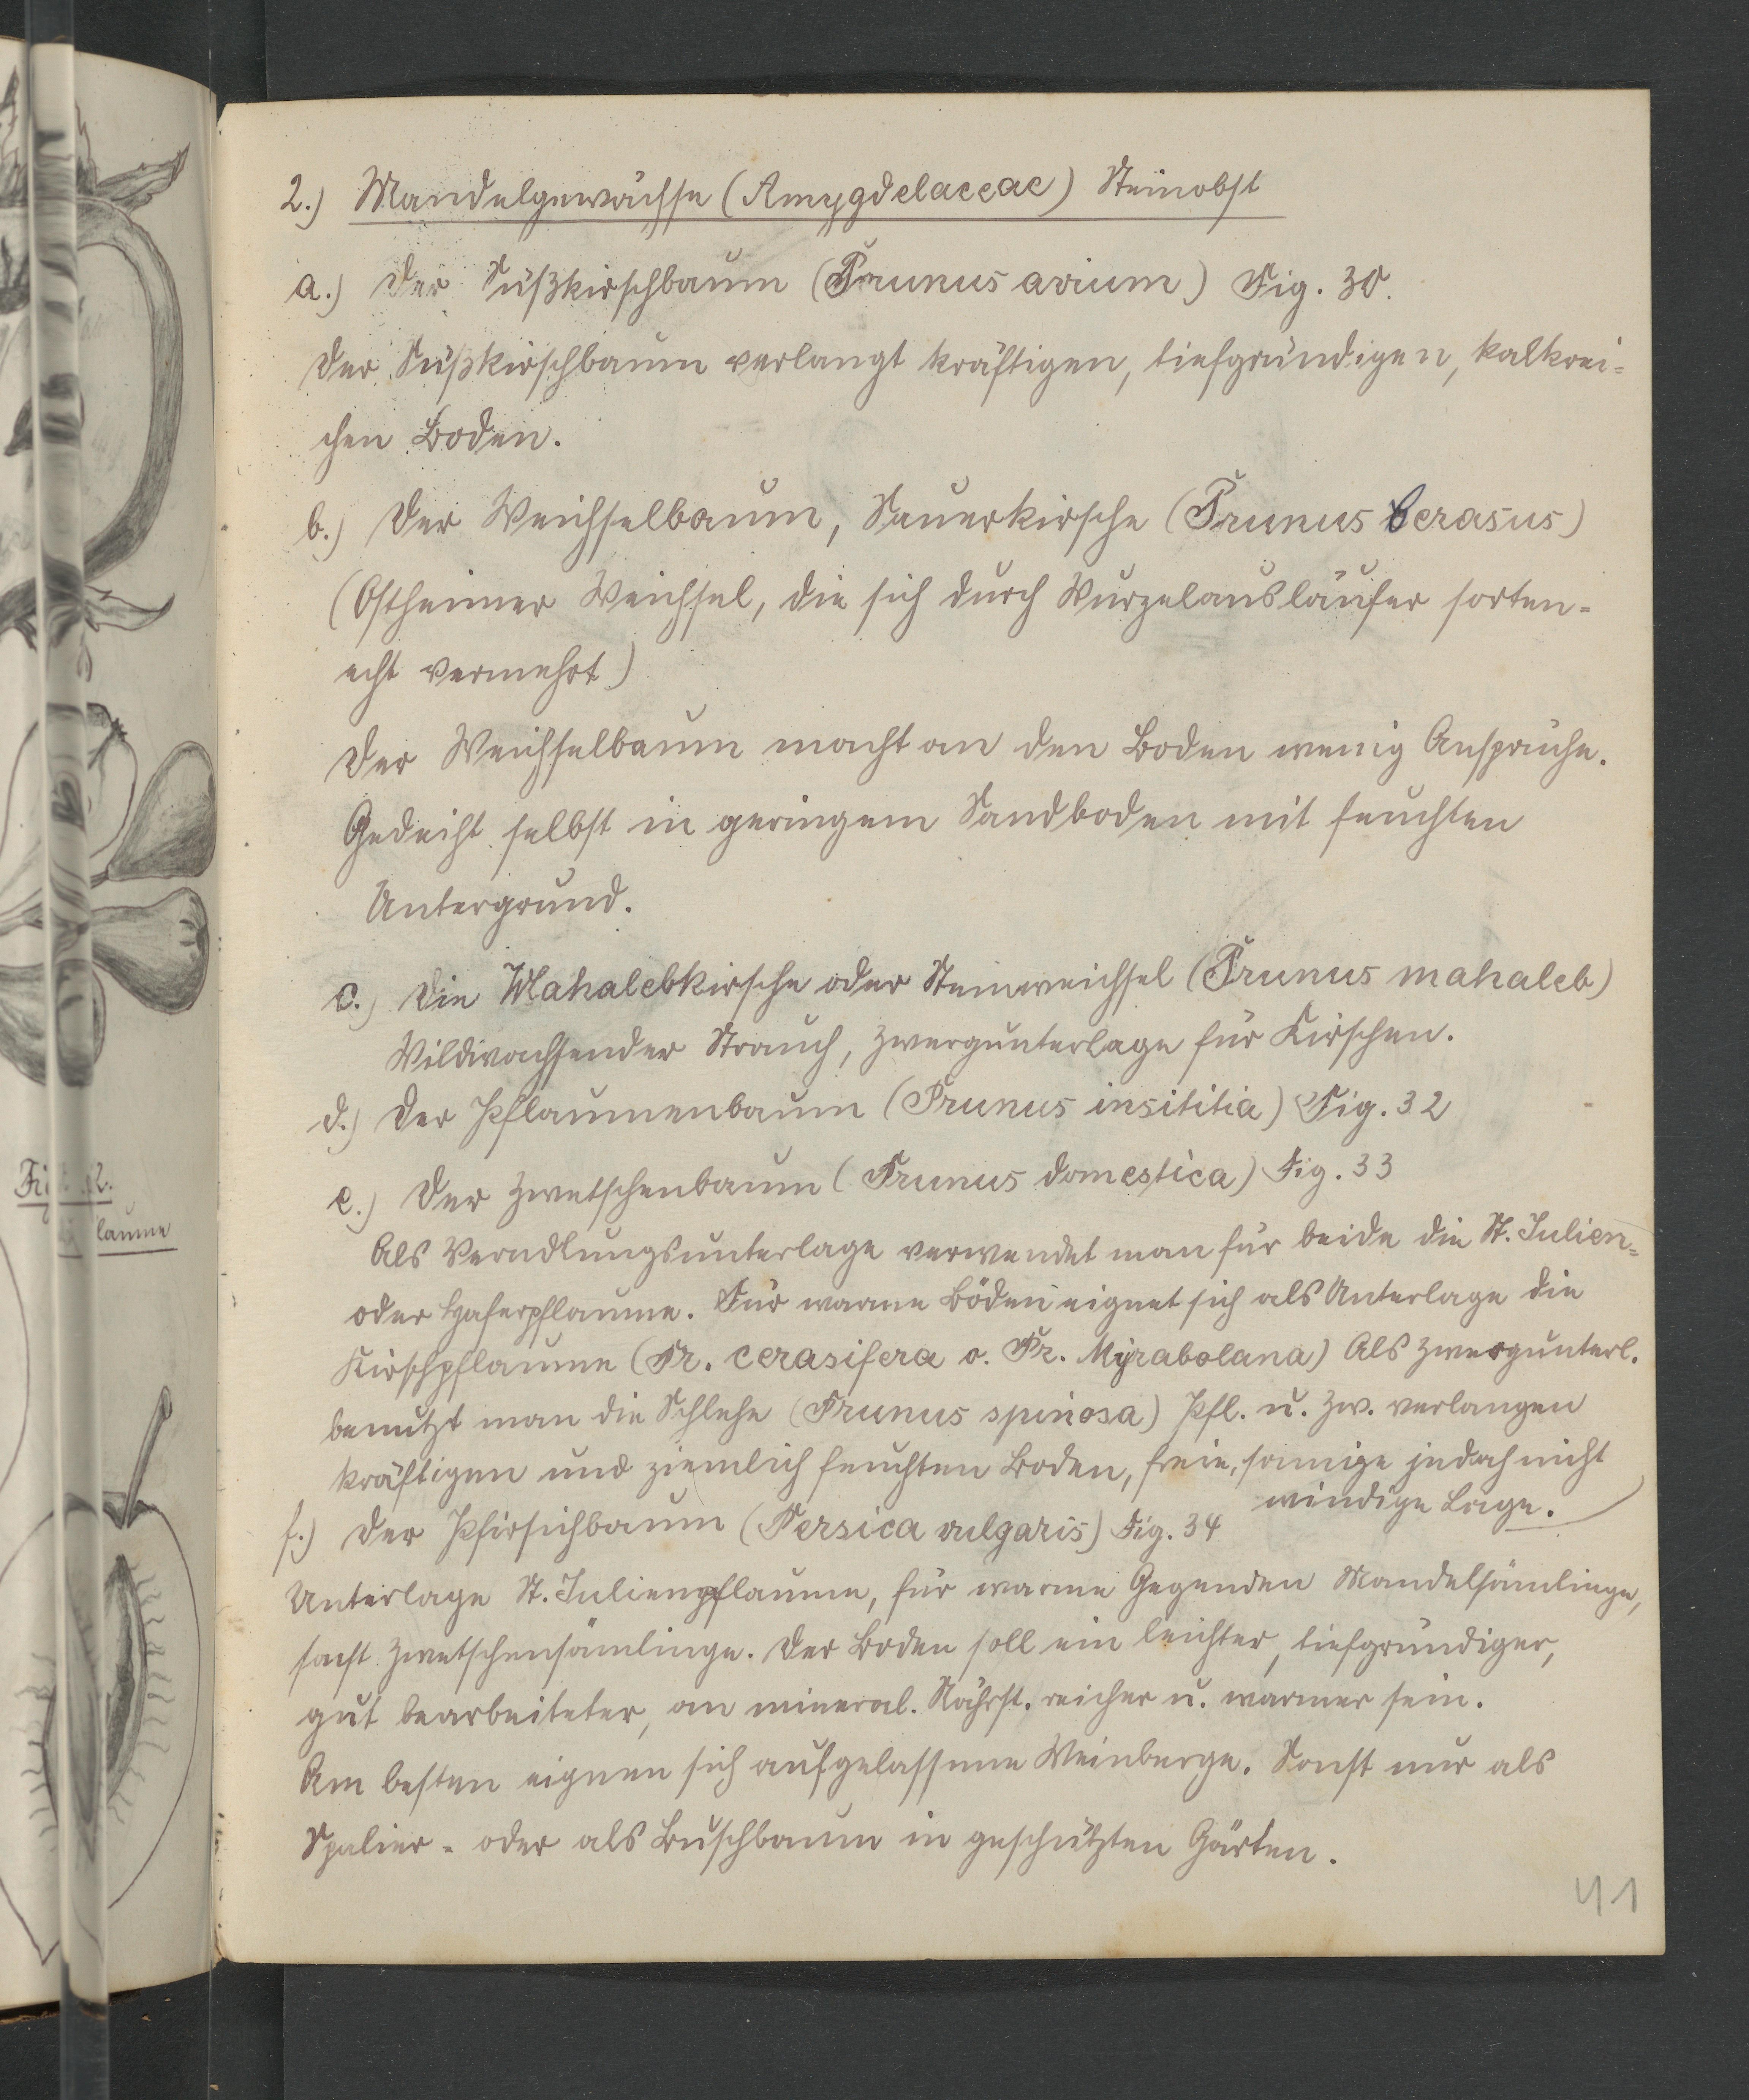 2.) Mandelgewächse (Amygdelaceae) Steinobst
a.) Der Süßkirschbaum (Prunus avium) Fig. 30.
Der Süßkirschbaum verlangt kräftigen, tiefgründigen, kalkrei-
chen Boden.
b.) Der Weichselbaum, Sauerkirsche (Prunus Cerasus)
(Ostheimer Weichsel, die sich durch Wurzelausläufer sorten-
echt vermehrt)
Der Weichselbaum macht an den Boden wenig Ansprüche.
Gedeiht selbst in geringem Sandboden mit feuchten
Untergrund.
c.) Die Mahalebkirsche oder Steinweichsel (Prunus mahaleb)
Wildwachsender Strauch, Zwergunterlage für Kirschen.
d.) Der Pflaumenbaum (Prunus insititia) Fig. 32
e.) Der Zwetschenbaum (Prunus domestica) Fig. 33
Als Veredlungsunterlage verwendet man für beide die St. Julien-
oder Haferpflaume. Für warme Böden eignet sich als Unterlage die
Kirschpflaume (Pr. cerasifera o. Pr. Myrabolana) Als Zwergunterl.
benutzt man die Schlehe (Prunus spinosa) Pfl. u. Zw. verlangen
kräftigen und ziemlich feuchten Boden, freie, sonnige jedoch nicht
windige Lage.
f.) Der Pfirsichbaum (Persica vulgaris) Fig. 34
Unterlage St. Julienpflaume, für warme Gegenden Mandelsämlinge,
sonst Zwetschensämlinge. Der Boden soll ein leichter, tiefgründiger,
gut bearbeiteter, an mineral. Nährst. reicher u. warmer sein.
Am besten eignen sich aufgelassene Weinberge. Sonst nur als
Spalier- oder als Buschbaum in geschützten Gärten.
41